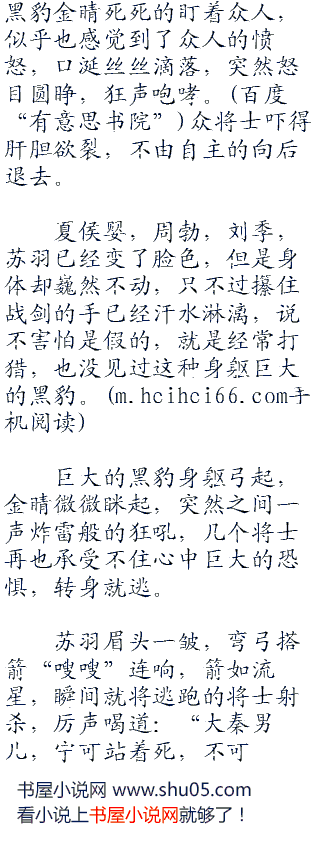 黑豹金晴死死的盯着众人，
似乎也感觉到了众人的愤
怒，口涎丝丝滴落，突然怒
目圆睁，狂声咆哮。(百度
“有意思书院”)众将士吓得
肝胆欲裂，不由自主的向后
退去。
夏侯婴，周勃，刘季，
苏羽已经变了脸色，但是身
体却巍然不动，只不过攥住
战剑的手已经汗水淋漓，说
不害怕是假的，就是经常打
猎，也没见过这种身躯巨大
的黑豹。(m.hcihci66.com手
机阅读)
巨大的黑豹身躯弓起，
金晴微微眯起，突然之间一
声炸雷般的狂吼，几个将士
再也承受不住心中巨大的恐
惧，转身就逃。
苏羽眉头一皱，弯弓搭
箭“嗖嗖”连响，箭如流
星，瞬间就将逃跑的将士射
杀，厉声喝道：“大秦男
儿，宁可站着死，不可
书屋小说网 www.shu05.com
看小说上书屋小说网就够了！